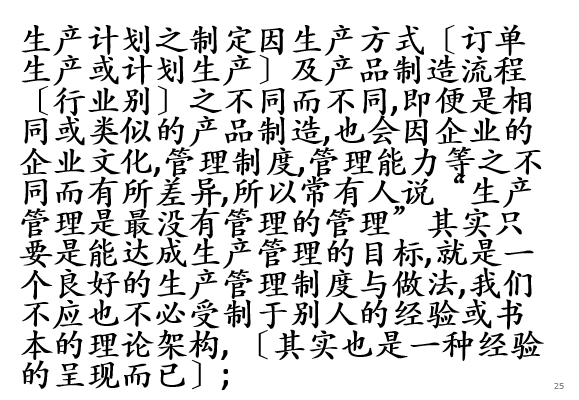 生产计划之制定因生产方式〔订单
生产或计划生产〕及产品制造流程
〔行业别〕之不同而不同,即便是相
同或类似的产品制造,也会因企业的
企业文化,管理制度,管理能力等之不
同而有所差异,所以常有人说“生产
管理是最没有管理的管理”其实只
要是能达成生产管理的目标,就是一
个良好的生产管理制度与做法,我们
不应也不必受制于别人的经验或书
本的理论架构,〔其实也是一种经验
的呈现而已〕;
25